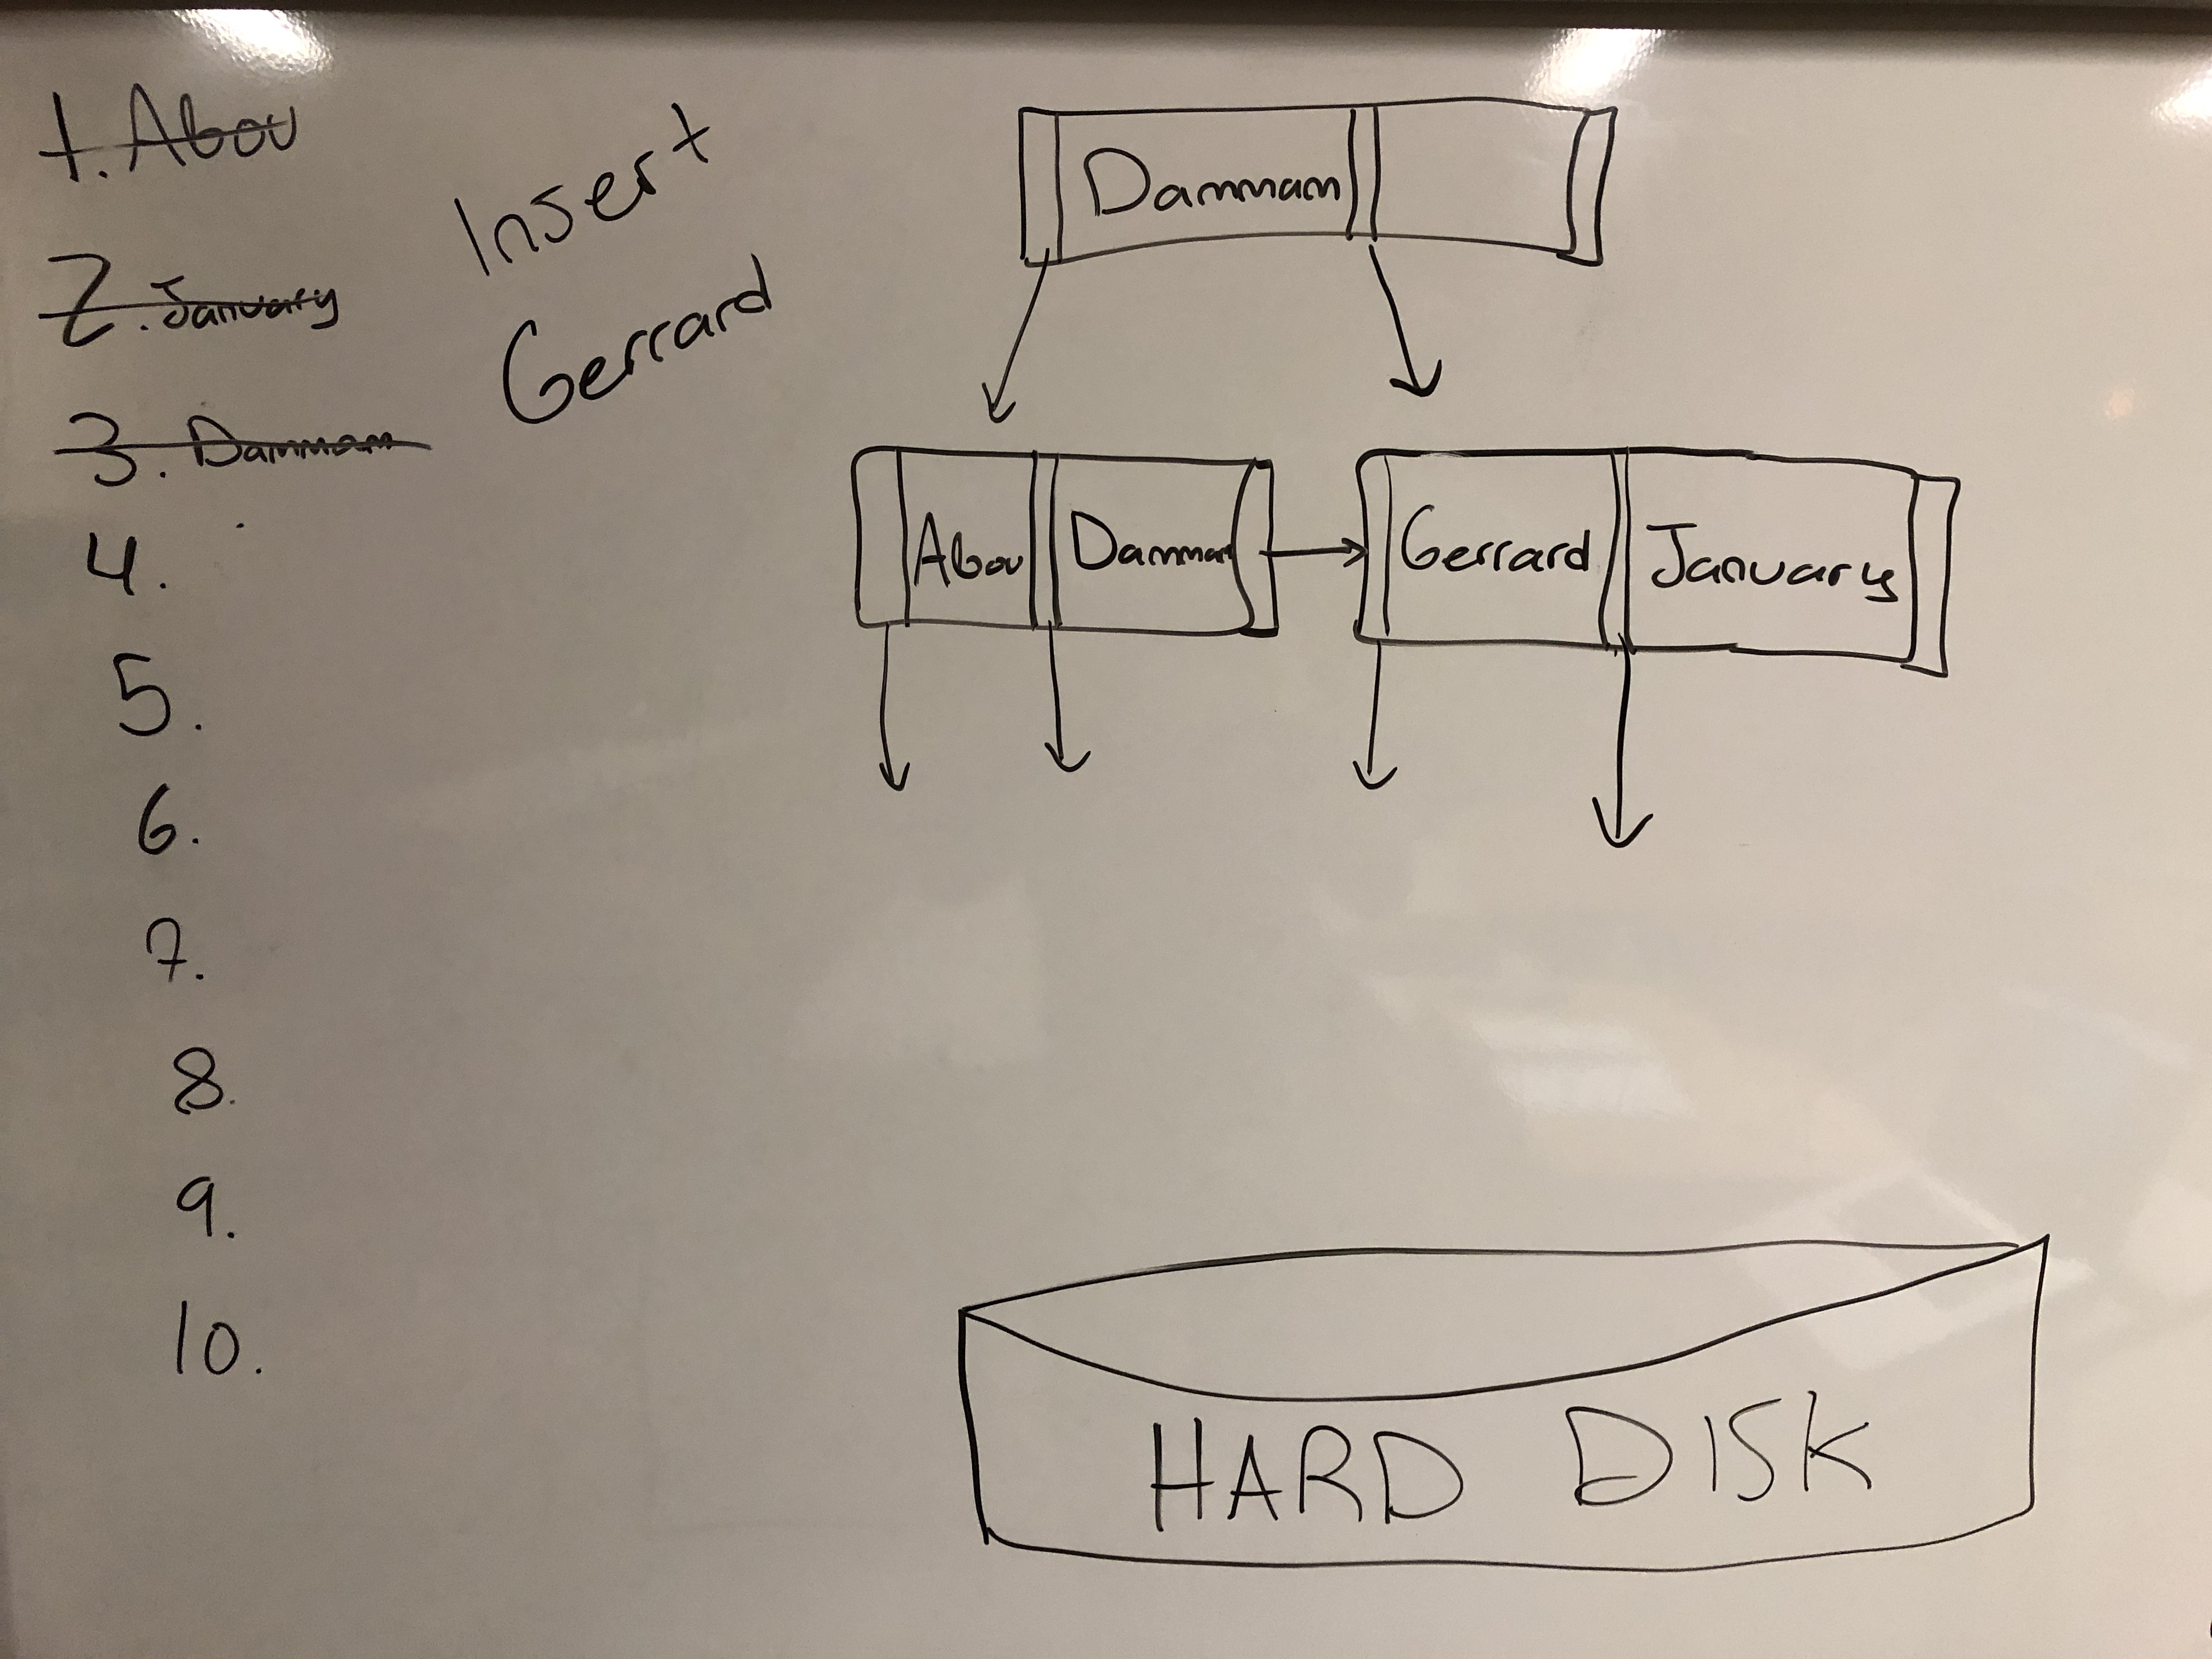 1. Abou
2. January
3. Dammam
4.
5.
6.
7.
8.
9.
10.
Insert
Gerrard
Dammam
Abou Dammam Gerrard January
HARD DISK